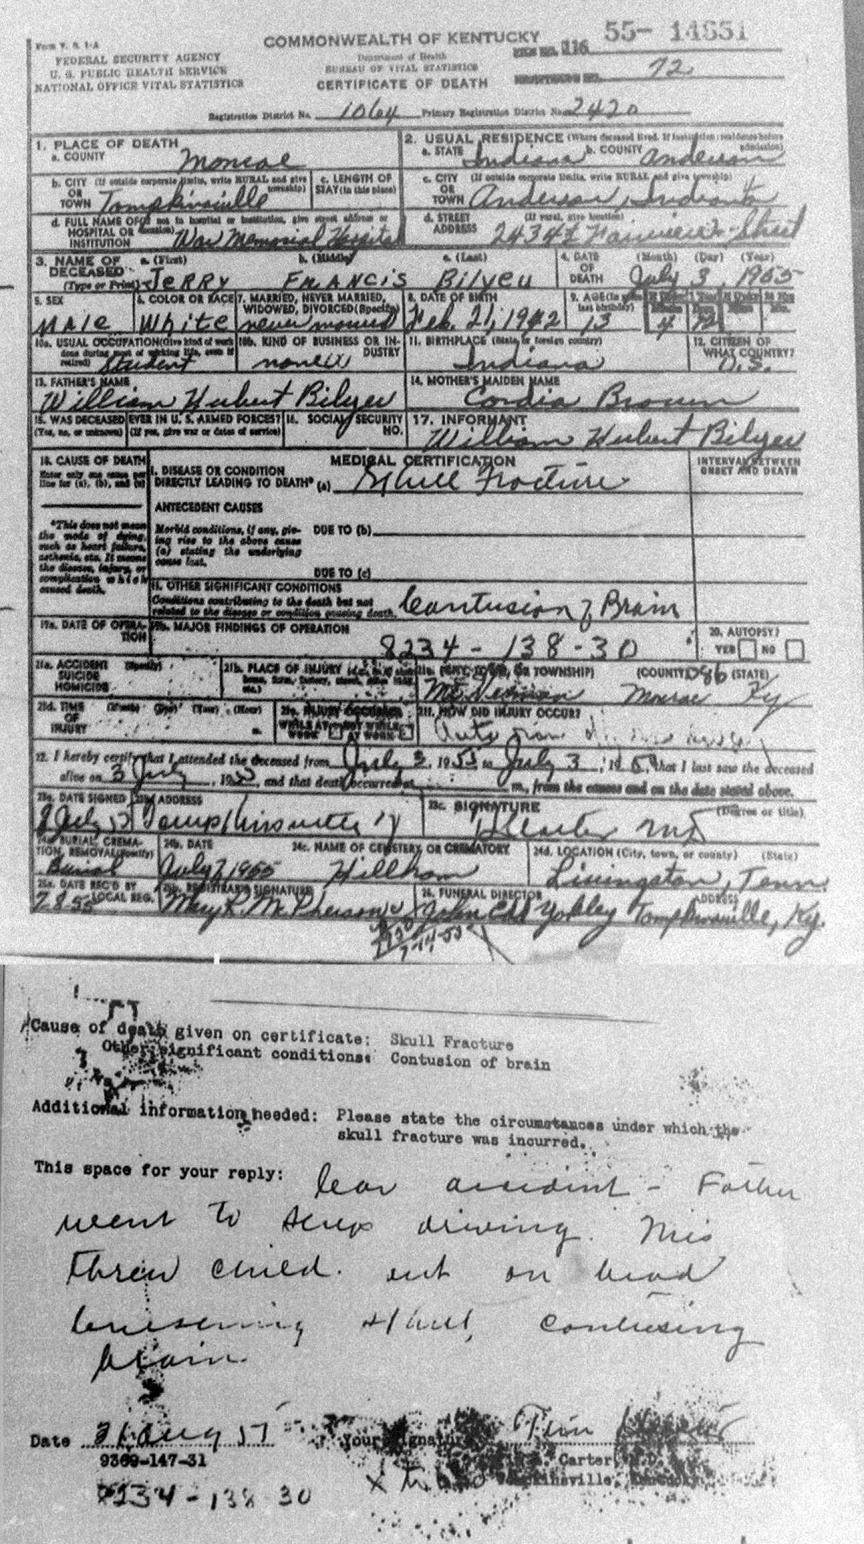 Form V. S. 1-A
COMMONWEALTH OF KENTUCKY
55- 14651
FEDERAL SECURITY AGENCY
Department of Health
FILE NO. 116
U. S. PUBLIC HEALTH SERVICE
BUREAU OF VITAL STATISTICS
72
NATIONAL OFFICE VITAL STATISTICS
CERTIFICATE OF DEATH
Registration District No. 1064 Primary Registration District No. 2420
1. PLACE OF DEATH
2. USUAL RESIDENCE (Where deceased lived. If institution: residence before admission)
a. COUNTY Monroe
a. STATE Indiana b. COUNTY Anderson
b. CITY (If outside corporate limits, write RURAL and give township) OR TOWN Tompkinsville
c. LENGTH OF STAY (in this place)
c. CITY (If outside corporate limits, write RURAL and give township) OR TOWN Anderson, Indiana
d. FULL NAME OF (If not in hospital or institution, give street address or location) HOSPITAL OR INSTITUTION War Memorial Hospital
d. STREET ADDRESS (If rural, give location) 2434 Street
3. NAME OF DECEASED (Type or Print) a. (First) JERRY b. (Middle) FRANCIS c. (Last) Bilyeu
4. DATE OF DEATH (Month) (Day) (Year) July 3, 1955
5. SEX Male
6. COLOR OR RACE White
7. MARRIED, NEVER MARRIED, WIDOWED, DIVORCED (Specify) never married
8. DATE OF BIRTH Feb. 21, 1942
9. AGE (In years last birthday) 13 4 12
10a. USUAL OCCUPATION (Give kind of work done during most of working life, even if retired) Student
10b. KIND OF BUSINESS OR INDUSTRY none
11. BIRTHPLACE (State or foreign country) Indiana
12. CITIZEN OF WHAT COUNTRY? U.S.
13. FATHER'S NAME William Hubert Bilyeu
14. MOTHER'S MAIDEN NAME Cordia Brown
15. WAS DECEASED EVER IN U. S. ARMED FORCES? (Yes, no, or unknown) (If yes, give war or dates of service)
16. SOCIAL SECURITY NO.
17. INFORMANT William Hubert Bilyeu
18. CAUSE OF DEATH
Enter only one cause per line for (a), (b), and (c)
MEDICAL CERTIFICATION
INTERVAL BETWEEN ONSET AND DEATH
I. DISEASE OR CONDITION DIRECTLY LEADING TO DEATH* (a) Skull Fracture
ANTECEDENT CAUSES
*This does not mean the mode of dying, such as heart failure, asthenia, etc. It means the disease, injury, or complication which caused death.
Morbid conditions, if any, giving rise to the above cause (a) stating the underlying cause last.
DUE TO (b)
DUE TO (c)
II. OTHER SIGNIFICANT CONDITIONS
Conditions contributing to the death but not related to the disease or condition causing death. Contusion of Brain
19a. DATE OF OPERATION
19b. MAJOR FINDINGS OF OPERATION
8234 - 138-30
20. AUTOPSY? YES NO
21a. ACCIDENT SUICIDE HOMICIDE (Specify)
21b. PLACE OF INJURY
21c. (CITY, TOWN, OR TOWNSHIP) (COUNTY) 086 (STATE)
Monroe Ky
21d. TIME OF INJURY (Month) (Day) (Year) (Hour) m.
21e. INJURY OCCURRED WHILE AT WORK NOT WHILE AT WORK
21f. HOW DID INJURY OCCUR?
Auto
22. I hereby certify that I attended the deceased from July 3, 1955 to July 3, 1955, that I last saw the deceased
alive on 3 July, 1955, and that death occurred at m., from the causes and on the date stated above.
23a. DATE SIGNED
23b. ADDRESS Tompkinsville Ky
23c. SIGNATURE (Degree or title)
Carter MD
24a. BURIAL, CREMATION, REMOVAL (Specify) Burial
24b. DATE July 7, 1955
24c. NAME OF CEMETERY OR CREMATORY Hillham
24d. LOCATION (City, town, or county) (State) Livingston, Tenn.
25a. DATE REC'D BY LOCAL REG. 7 8 55
25b. REGISTRAR'S SIGNATURE Mary R. McPherson
26. FUNERAL DIRECTOR ADDRESS
Yokley Tompkinsville, Ky.
7-14-55
Cause of death given on certificate: Skull Fracture
Other significant conditions: Contusion of brain
Additional information needed: Please state the circumstances under which the
skull fracture was incurred.
This space for your reply: Car accident - Father
went to sleep driving. This
threw child out on head
skull, contusing
brain.
Date 31 Aug 55 Your signature
9369-147-31
Carter, M.D.
Tompkinsville, Kentucky
8234-138-30